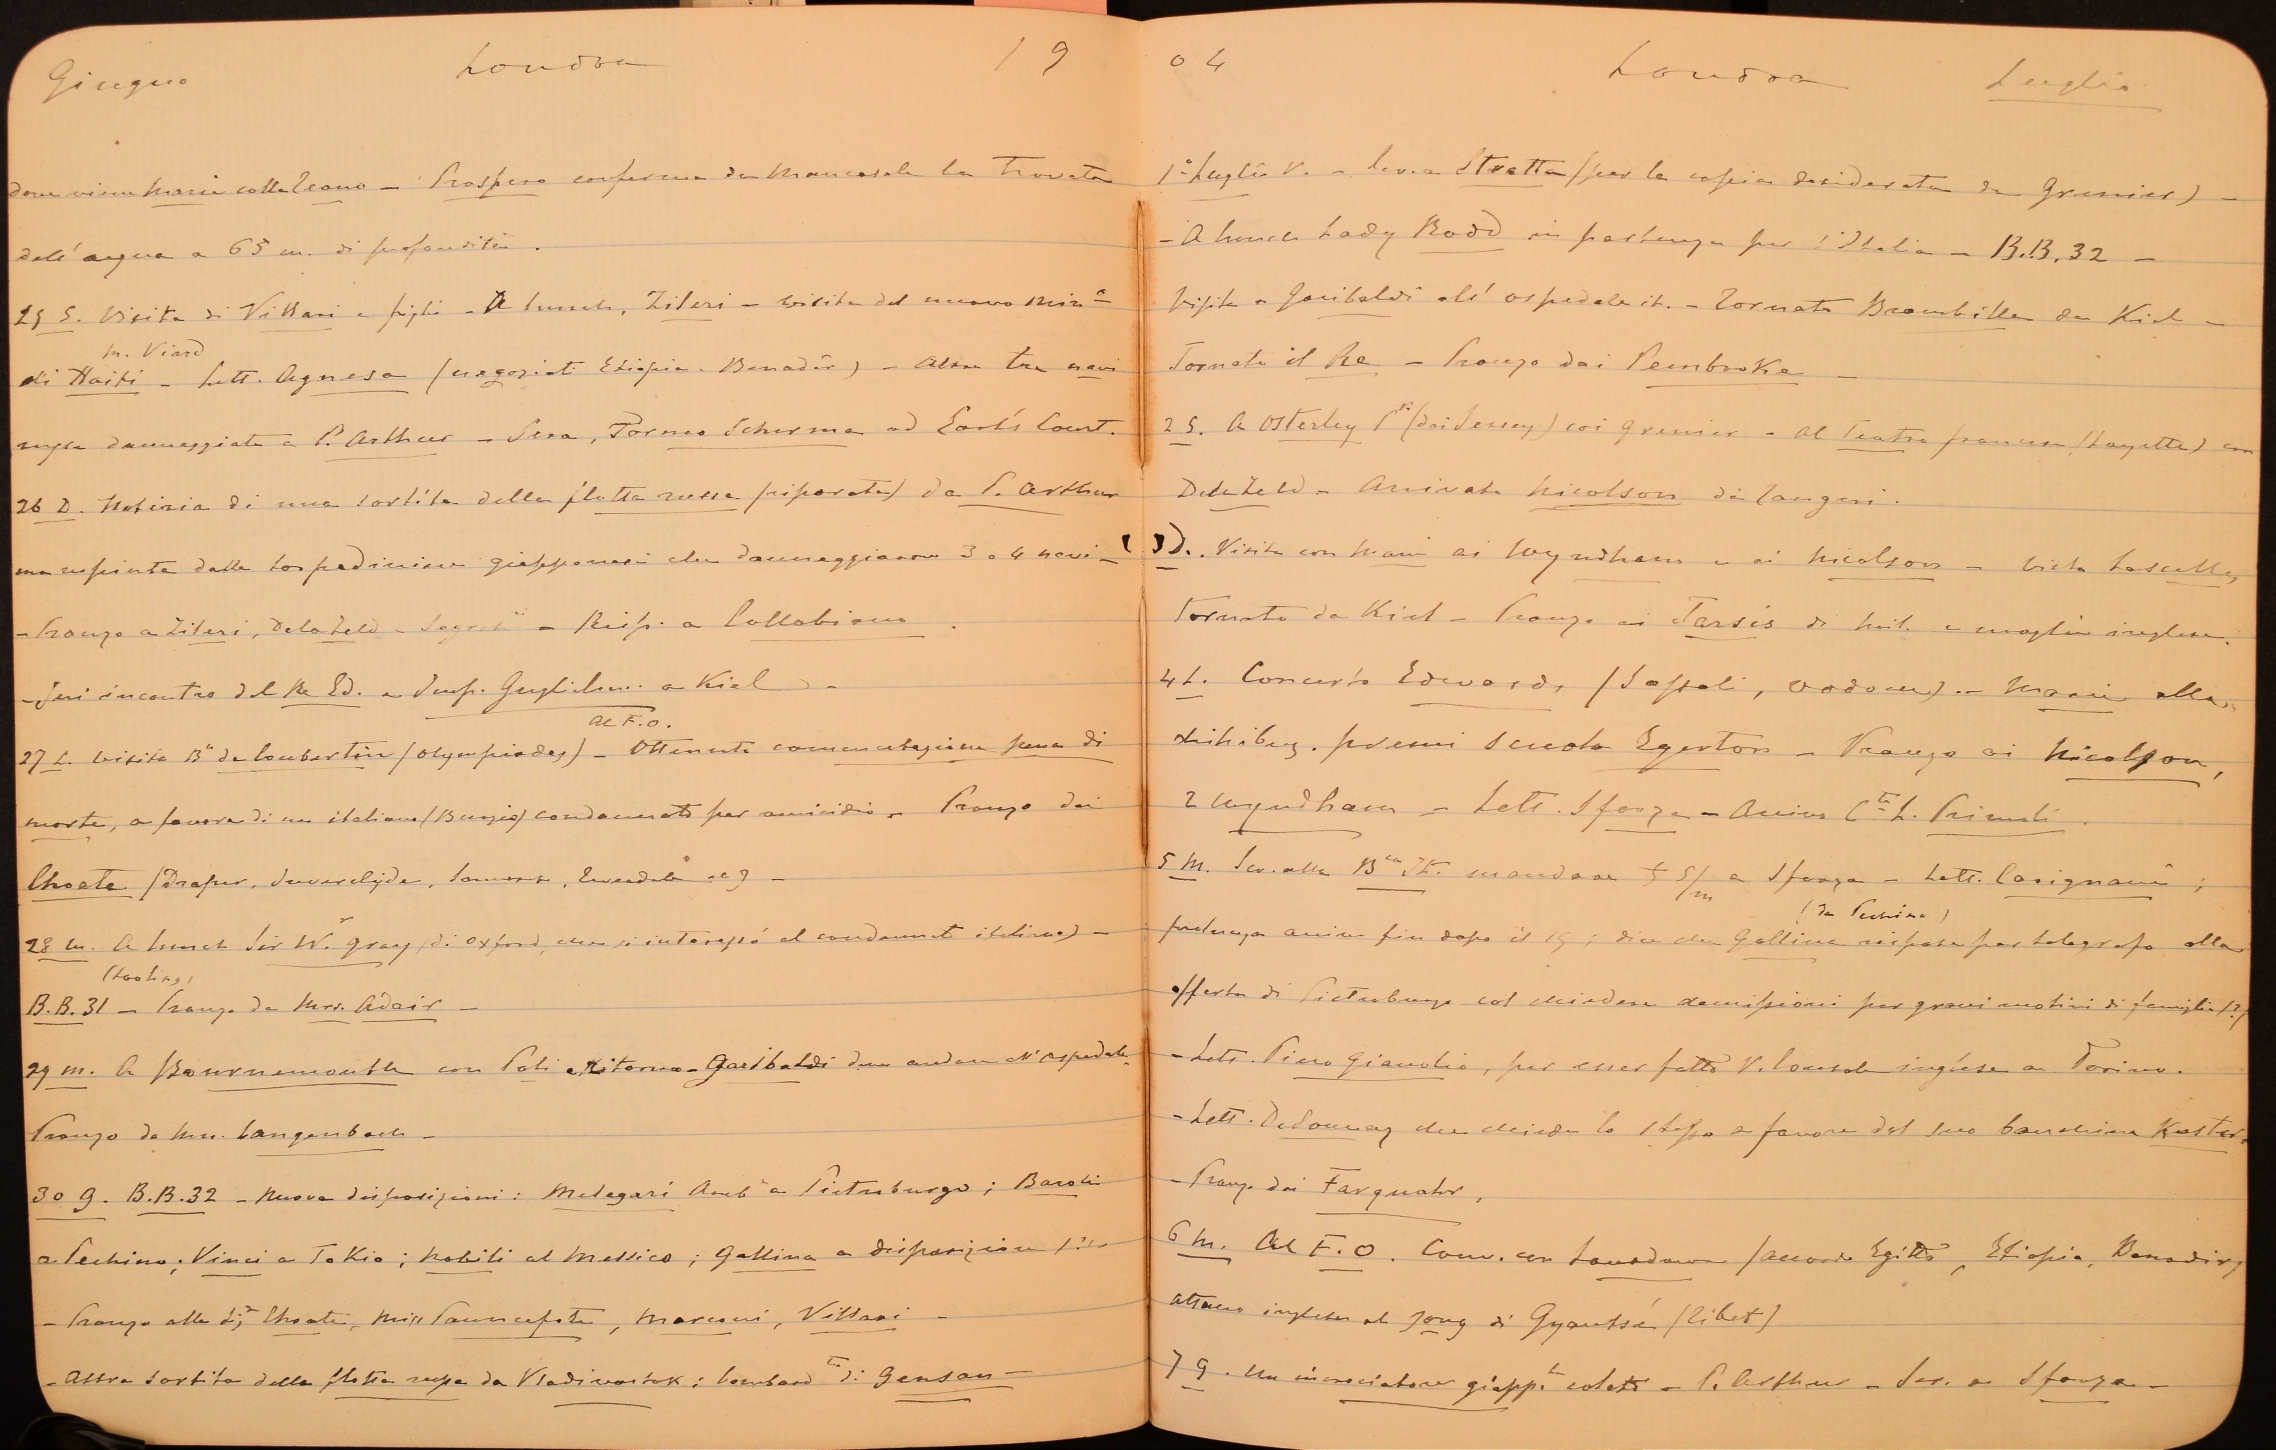 Giugno Londra 19
dove viene Marié colla Teano - Prospero conferma da Mancasale la trovata
dell'acqua a 65 m. di profondità.
25 S. Visita di Villari e figli - A lunch, Zileri - visita del nuovo Min.o
M. Viard
di Haiti - Lett. Agnesa (negoziati Etiopia-Benadir) - Altre tre navi
russe danneggiate a P. Arthur - Sera, Torneo Scherma ad Earl's Court.
26 D. Notizia di una sortita della flotta russa (riparata) da P. Arthur
ma respinta dalle torpediniere giapponesi che danneggiarono 3 o 4 navi -
- Pranzo a Zileri, Delafeld e - Risp. a Collobiano.
- Jeri incontro del Re Ed. e Imp. Guglielmo a Kiel -
Al F.O.
27 L. visita Bn de Coubertin (Olympiades) - Ottenuta commutazione pena di
morte, a favore di un italiano condannato per omicidio - Pranzo dai
Choate (Draper, Inverclyde, ecc) -
28 M. A lunch Sir W.r Gray di Oxford, che si interessò al condannato italiano) -
(Tooling)
B.B. 31 - Pranzo da Mrs. Adair -
29 M. A Bournemouth con Poli e ritorno - Garibaldi deve andare all'ospedale.
Pranzo da Mrs. Langenbach -
30 G. B.B. 32 - Nuove disposizioni: Melegari Amb.e a Pietroburgo; Baroli
a Pechino; Vinci a Tokio; Nobili al Messico; Gallina a disposizione
- Pranzo alle Choate, Miss Pauncefote, Marconi, Villari -
- Altra sortita della flotta russa da Vladivostok; bombard.to di Gensan -
04 Londra Luglio
1° Luglio V. - Scr. a Stratta (per la copia desiderata da Grenier) -
- A lunch Lady Rodd in partenza per l'Italia - B.B. 32 -
Visita a Garibaldi all'ospedale it. - Tornato Brambilla da Kiel -
Tornato il Re - Pranzo dai Pembroke -
2 S. A Osterley P.k (dai Jersey) coi Grenier - Al Teatro francese con
Delafeld - Arrivato Nicolson da Tangeri.
3 D. Visita con Marié ai Wyndham e ai Nicolson - visto Lascelles
tornato da Kiel - Pranzo ai Tarsis di Mil. e moglie inglese.
4 L. Concerto Edwards - Marié alla
distribuz. premi scuola Egerton - Pranzo ai Nicolson,
2 Wyndham - Lett. Sforza - Arrivo C.te L. Primoli.
5 M. Scr. alla B.ca It. mandare £ 5/m a Sforza - Lett. Carignani;
(da Pechino)
prolunga arrivo fin dopo il 15; dice che Gallina rispose per telegrafo alla
offerta di Pietroburgo col chiedere demissioni per gravi motivi di famiglia (?)
- Lett. Piero Gianolio, per esser fatto V. Console inglese a Torino.
- Lett. DeSonnaz che chiede lo stesso a favore del suo banchiere Kuster.
- Pranzo dai Farquahr.
6 M. Al F.O. Conv. con Lansdowne (accordo Egitto, Etiopia, Benadir)
attacco inglese al Jong di Gyantsé (Tibet)
7 G. Un incrociatore giapp.se colato - P. Arthur - Scr. a Sforza -